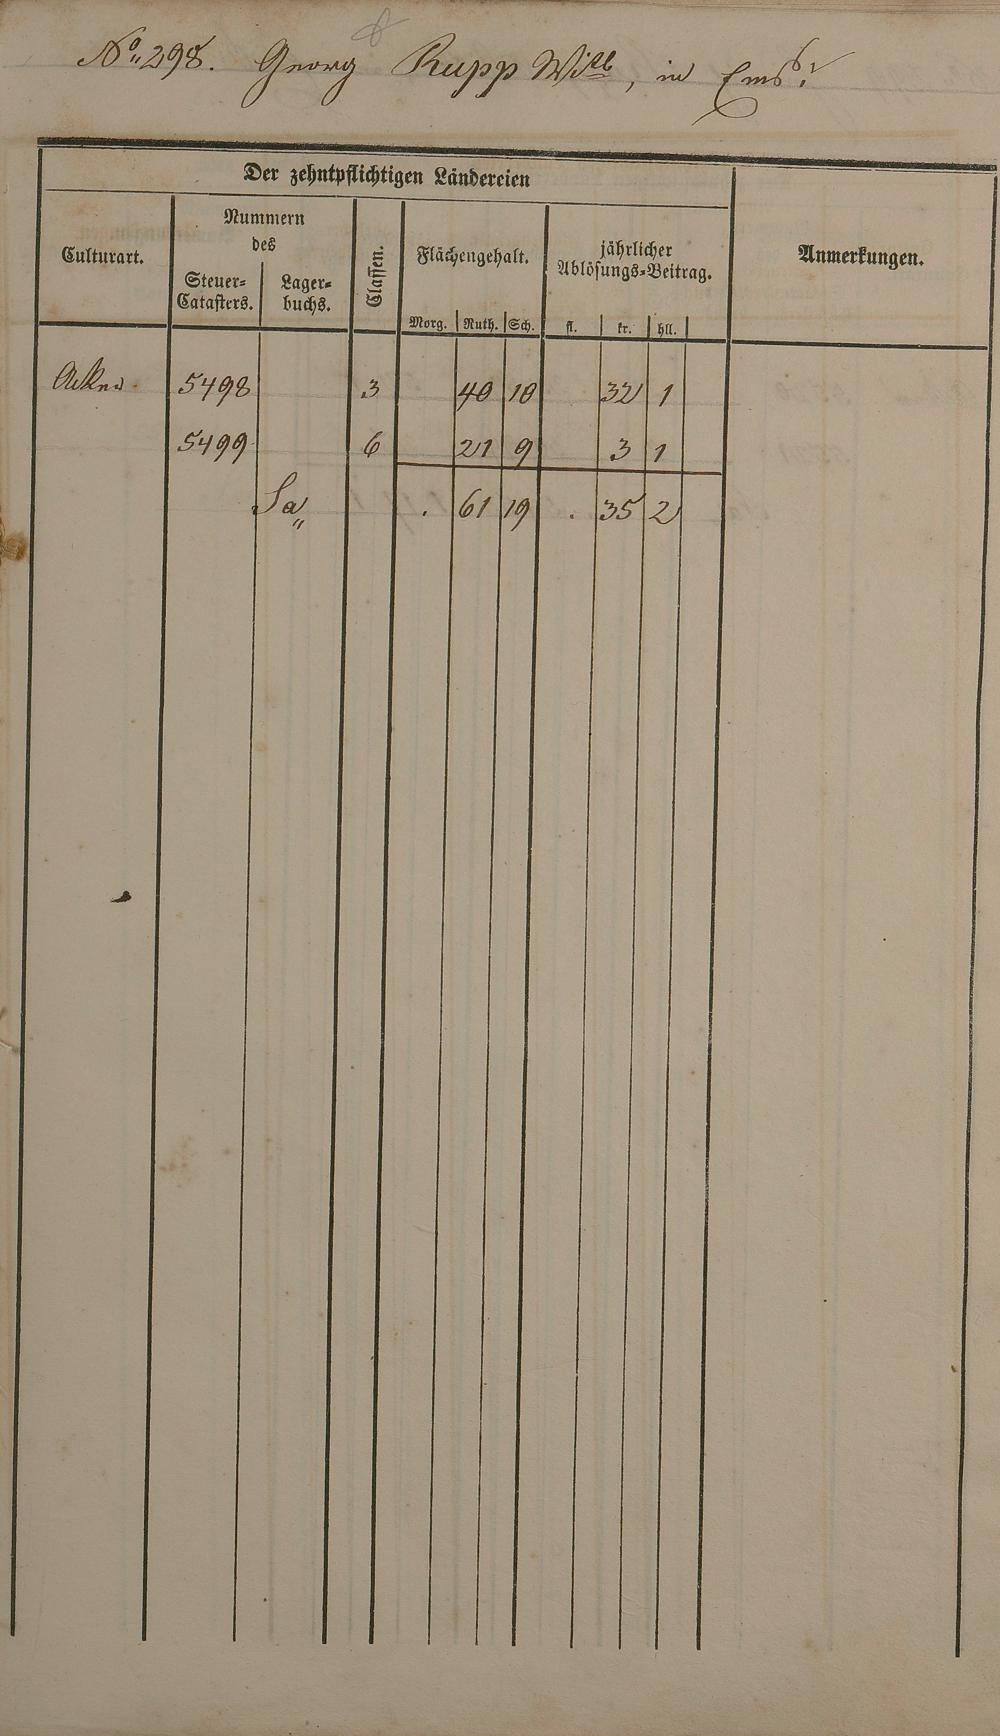 No. 298. Georg Rupp Wttb, in Ems
Der zehntpflichtigen Ländereien
Culturart.
Nummern
des
Steuer-
Catasters.
Lager-
buchs.
Classen.
Flächengehalt.
Morg. Ruth. Sch.
jährlicher
Ablösungs-Beitrag.
fl. kr. hll.
Anmerkungen.
Acker 5498 3 40 10 32 1
5499 6 21 9 3 1
Sa . 61 19 . 35 2